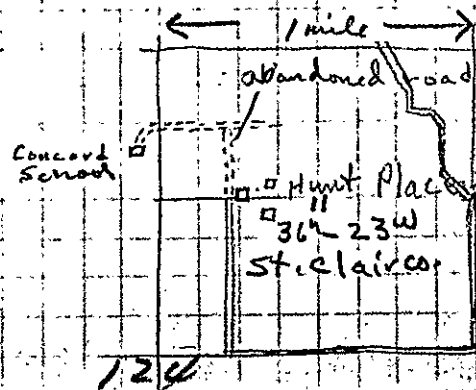 1 mile
abandoned road
Concord
School
Hunt Place
11
36N-23W
St. Clair co.
124